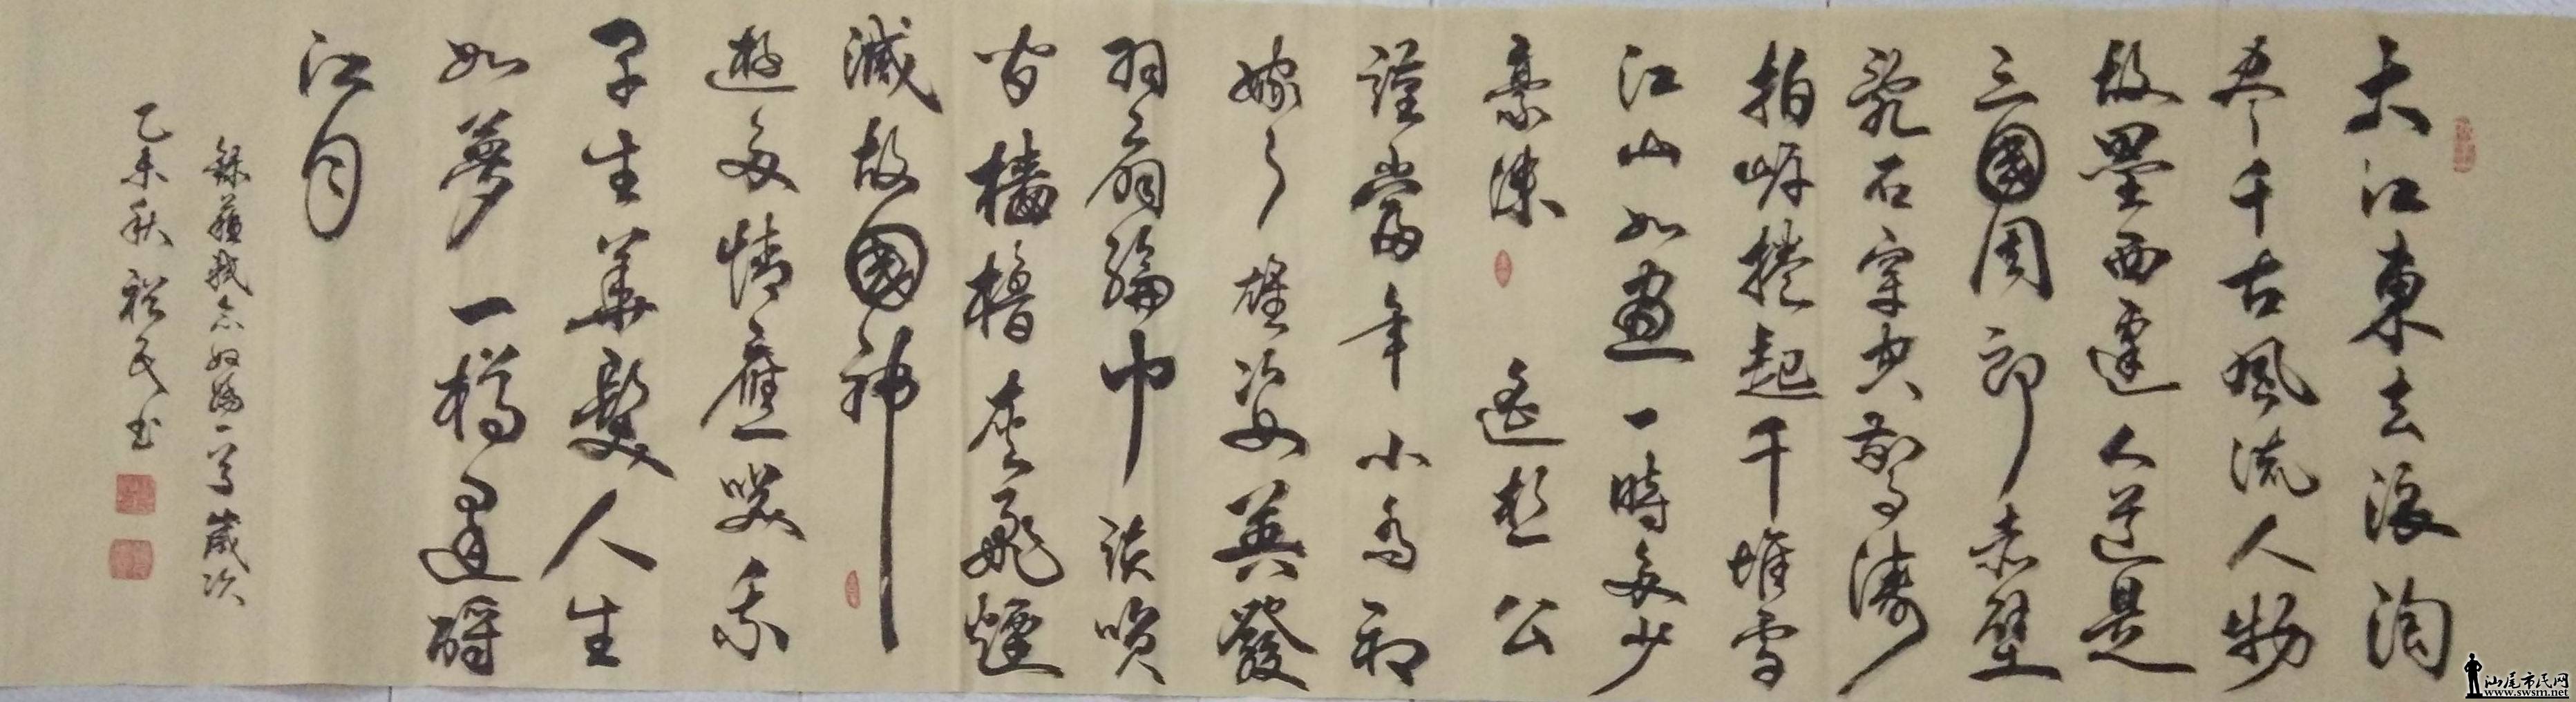 大江東去浪淘
尽千古風流人物
故壘西邊人道是
三國周郎赤壁
亂石穿空驚濤
拍岸捲起千堆雪
江山如畫一時多少
豪傑遙想公
謹當年小喬初
嫁了雄姿英發
羽扇綸巾談咲
間檣櫓灰飛煙
滅故國神
遊多情應咲我
早生華髮人生
如夢一樽還酹
江月
錄蘇軾念奴嬌一首歲次
乙未秋裕民书
汕尾市民网
www.swsm.net